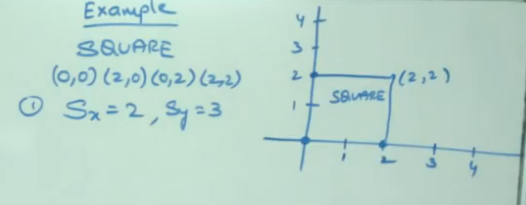 Example
SQUARE
(0,0) (2,0) (0,2) (2,2)
① Sx=2, Sy=3
4
3
2
(2,2)
1
SQUARE
1
2
3
4